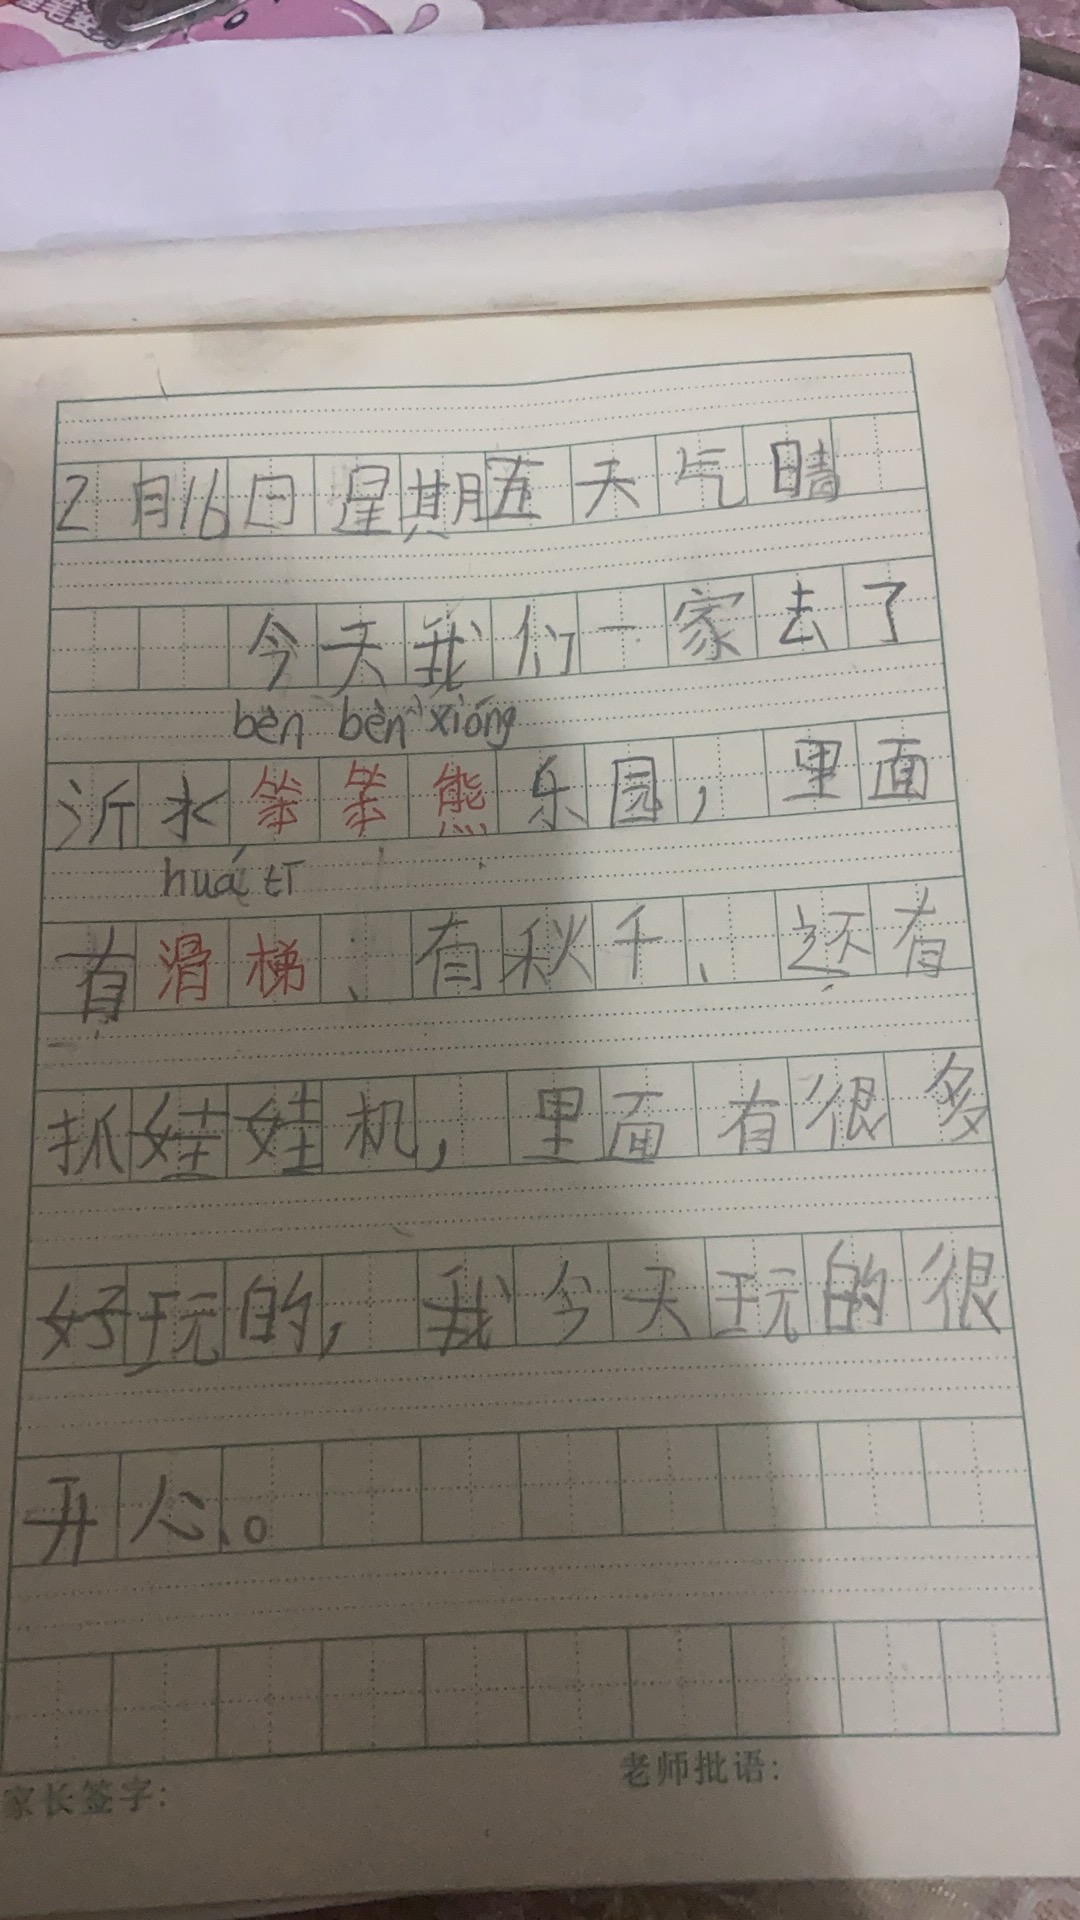 2月16日星期五天气晴
今天我们一家去了
bèn bèn xióng
沂水笨笨熊乐园，里面
huá tī
有滑梯、有秋千、还有
抓娃娃机，里面有很多
好玩的，我今天玩的很
开心。
家长签字:
老师批语: